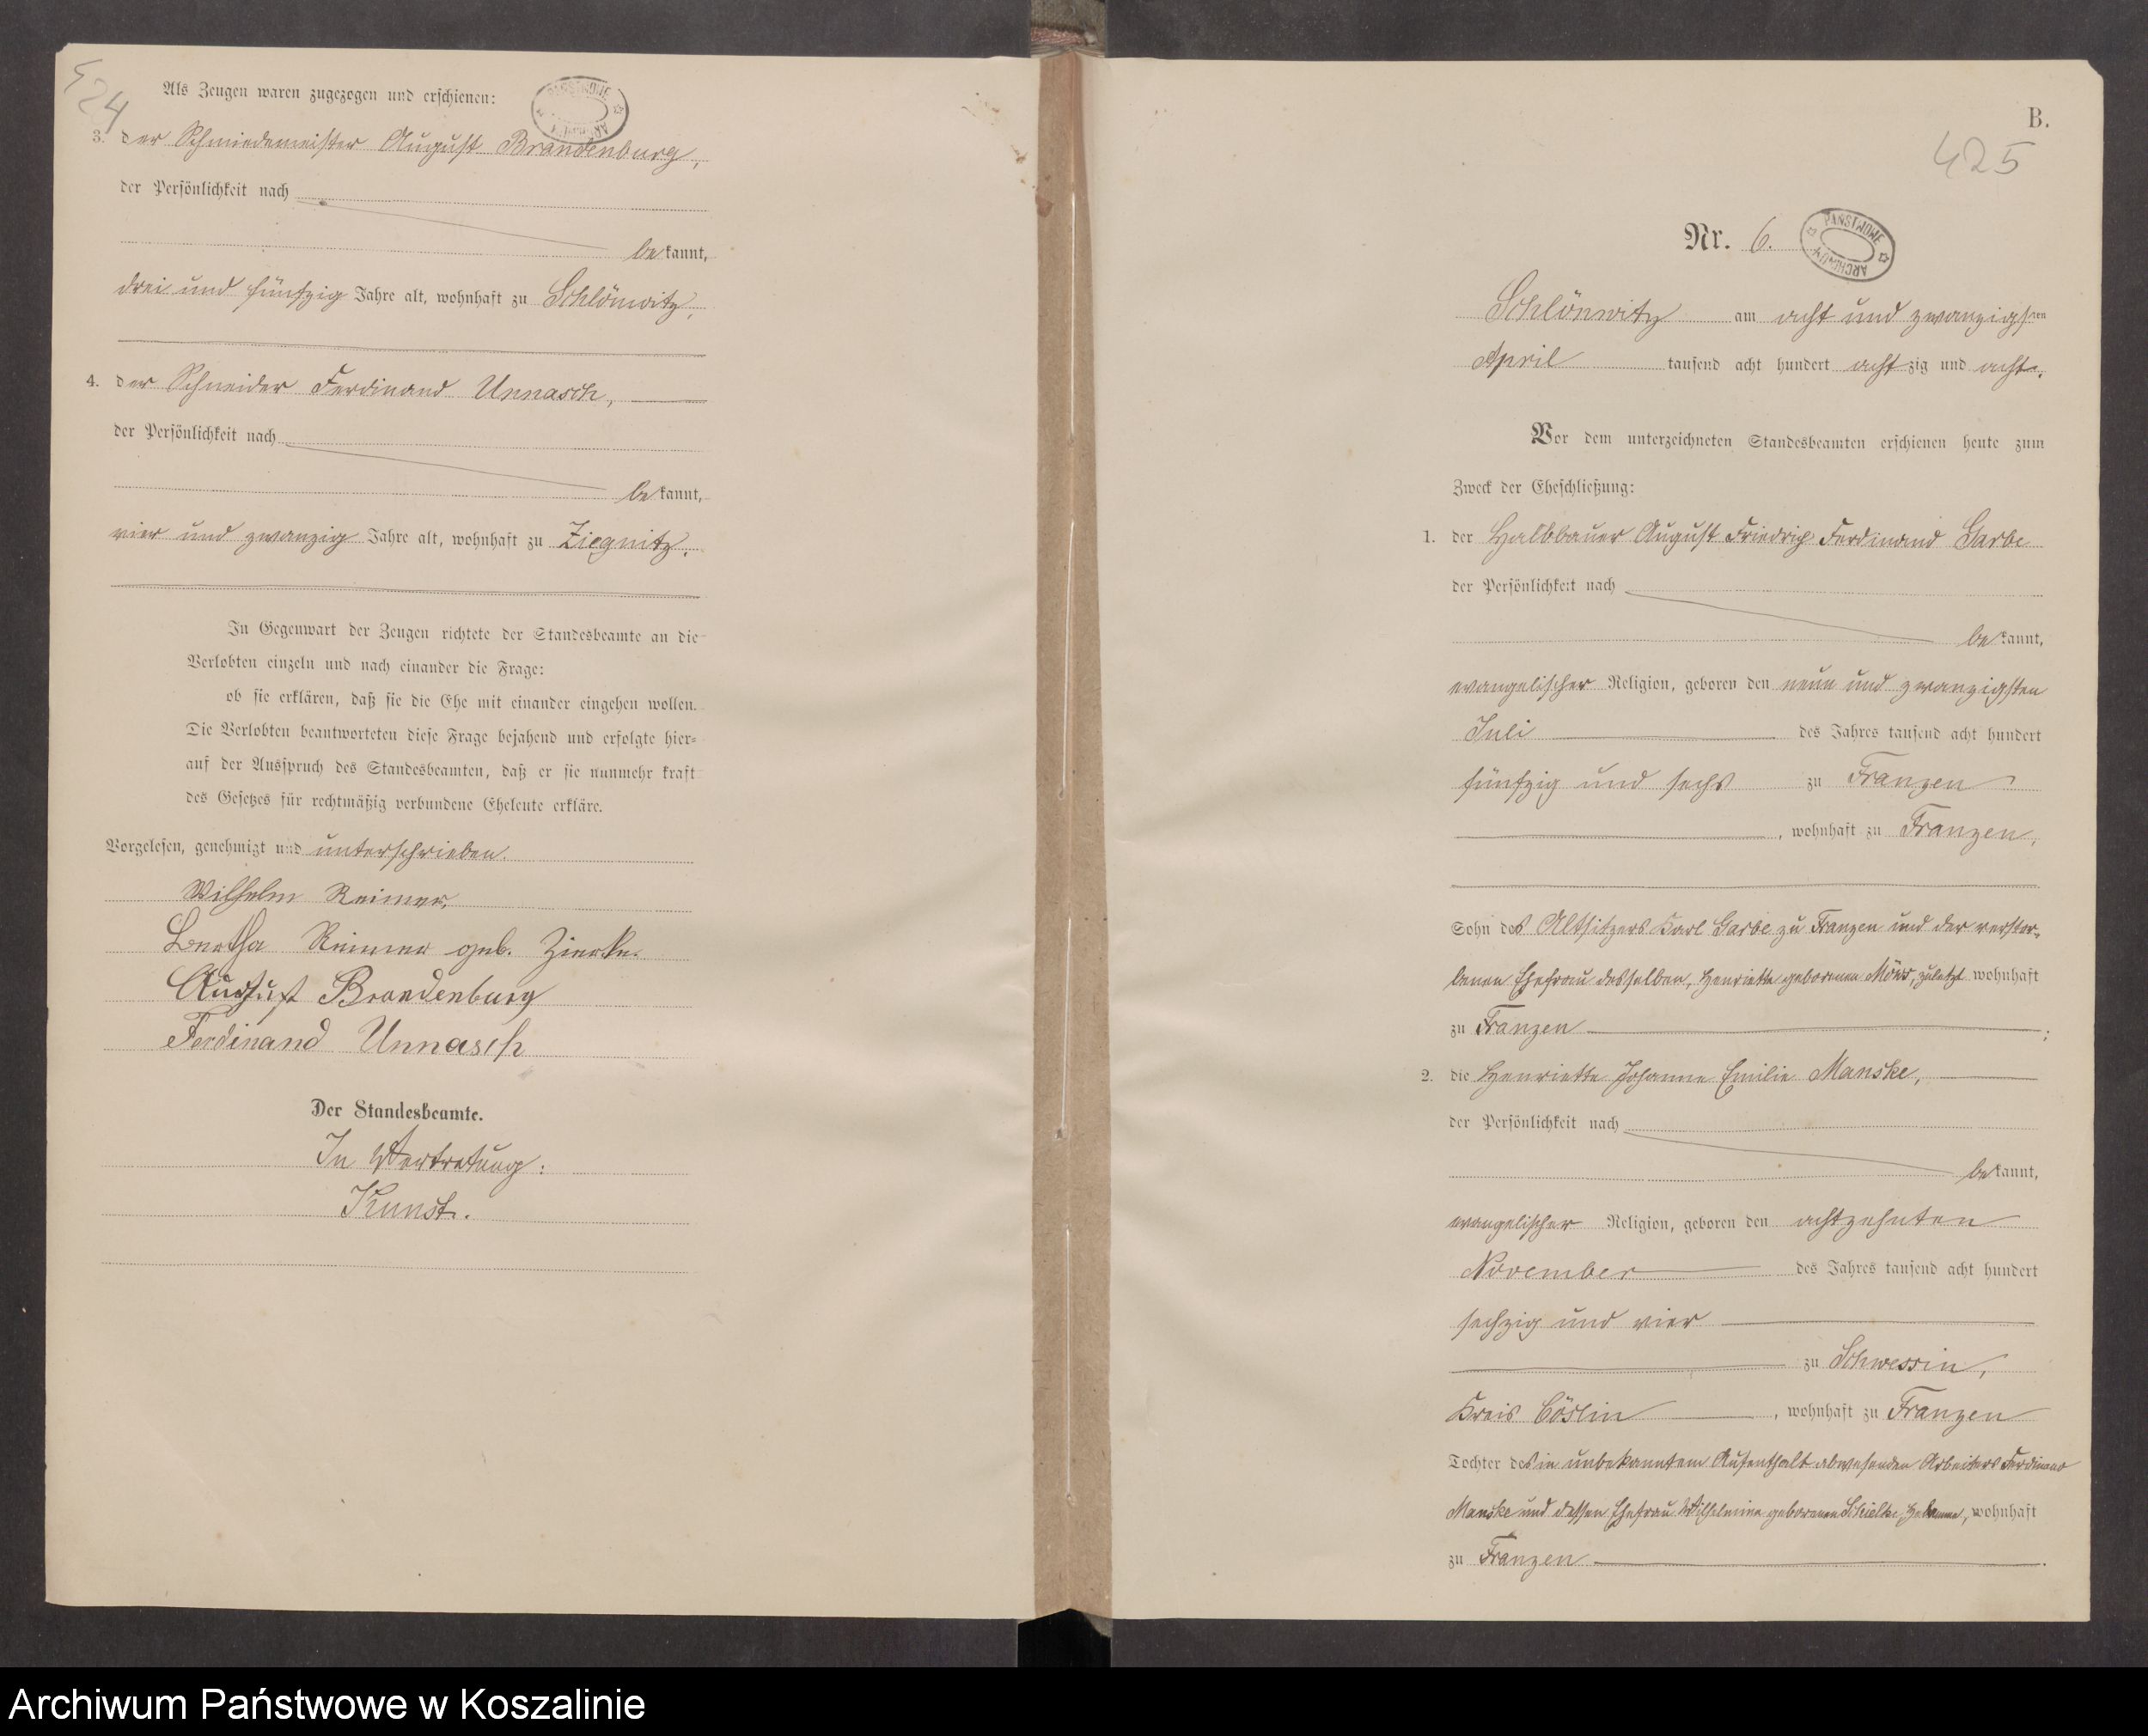 424
Als Zeugen waren zugezogen und erschienen:
PAŃSTWOWE ARCHIWUM
3. der Schmiedemeister August Brandenburg,
der Persönlichkeit nach
bekannt,
drei und fünfzig Jahre alt, wohnhaft zu Schlönwitz,
4. der Schneider Ferdinand Unnasch,
der Persönlichkeit nach
bekannt,
vier und zwanzig Jahre alt, wohnhaft zu Ziegnitz.
In Gegenwart der Zeugen richtete der Standesbeamte an die
Verlobten einzeln und nach einander die Frage:
ob sie erklären, daß sie die Ehe mit einander eingehen wollen.
Die Verlobten beantworteten diese Frage bejahend und erfolgte hier-
auf der Ausspruch des Standesbeamten, daß er sie nunmehr kraft
des Gesetzes für rechtmäßig verbundene Eheleute erkläre.
Vorgelesen, genehmigt und unterschrieben.
Wilhelm Reimer.
Reimer geb.
August Brandenburg
Ferdinand Unnasch
Der Standesbeamte.
In Vertretung:
Kunst.
B.
425
Nr. 6.
PAŃSTWOWE ARCHIWUM
Schlönwitz am acht und zwanzigsten
April tausend acht hundert achtzig und acht.
Vor dem unterzeichneten Standesbeamten erschienen heute zum
Zweck der Eheschließung:
1. der Halbbauer August Friedrich Ferdinand Garbe
der Persönlichkeit nach
bekannt,
evangelischer Religion, geboren den neun und zwanzigsten
Juli des Jahres tausend acht hundert
fünfzig und sechs zu Franzen
, wohnhaft zu Franzen,
Sohn des Altsitzers Karl Garbe zu Franzen und der verstor-
benen Ehefrau desselben, Henriette geborenen zuletzt wohnhaft
zu Franzen ;
2. die Henriette Johanne Emilie Manske,
der Persönlichkeit nach
bekannt,
evangelischer Religion, geboren den achtzehnten
November des Jahres tausend acht hundert
sechzig und vier
zu Schwessin,
Kreis Cöslin , wohnhaft zu Franzen
Tochter des in unbekanntem Aufenthalt abwesenden Arbeiters Ferdinand
Manske und dessen Ehefrau Wilhelmine geborenen wohnhaft
zu Franzen .
Archiwum Państwowe w Koszalinie